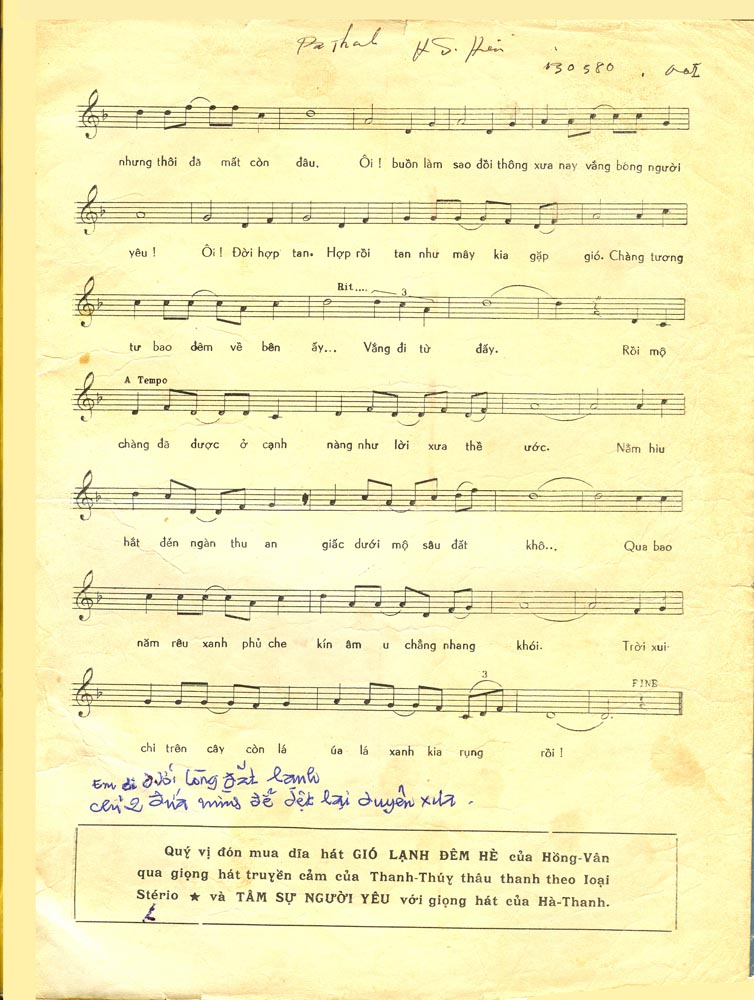 nhưng thôi đã mất còn đâu. Ôi ! buồn làm sao đồi thông xưa nay vắng bóng người
yêu ! Ôi ! Đời hợp tan. Hợp rồi tan như mây kia gặp gió. Chàng tương
Rit....
3
tư bao đêm về bên ấy... Vắng đi từ đấy. Rồi mộ
A Tempo
chàng đã được ở cạnh nàng như lời xưa thề ước. Nằm hiu
hắt đến ngàn thu an giấc dưới mộ sâu đất khô... Qua bao
năm rêu xanh phủ che kín âm u chẳng nhang khói. Trời xui
3
FINE
chi trên cây còn lá úa lá xanh kia rụng rồi !
Em đi dưới lòng đất lạnh
đứa mình để dệt lại duyên xưa .
Quý vị đón mua dĩa hát GIÓ LẠNH ĐÊM HÈ của Hồng-Vân
qua giọng hát truyền cảm của Thanh-Thúy thâu thanh theo loại
Stério ★ và TÂM SỰ NGƯỜI YÊU với giọng hát của Hà-Thanh.